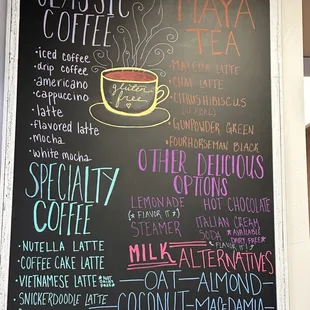 CLASSIC
COFFEE
• iced coffee
• drip coffee
• americano
• cappuccino
• latte
• flavored latte
• mocha
• white mocha
gluten
free
MAYA
TEA
• MATCHA LATTE
• CHAI LATTE
• CITRUS HIBISCUS
• GUNPOWDER GREEN
• FOURHORSEMAN BLACK
OTHER DELICIOUS
OPTIONS
LEMONADE
(FLAVOR IT)
STEAMER
HOT CHOCOLATE
ITALIAN CREAM
SODA *AVAILABLE
DAIRY FREE*
(FLAVOR IT)
SPECIALTY
COFFEE
• NUTELLA LATTE
• COFFEE CAKE LATTE
• VIETNAMESE LATTE
• SNICKERDOODLE LATTE
MILK ALTERNATIVES
—OAT—ALMOND—
COCONUT—MACADAMIA